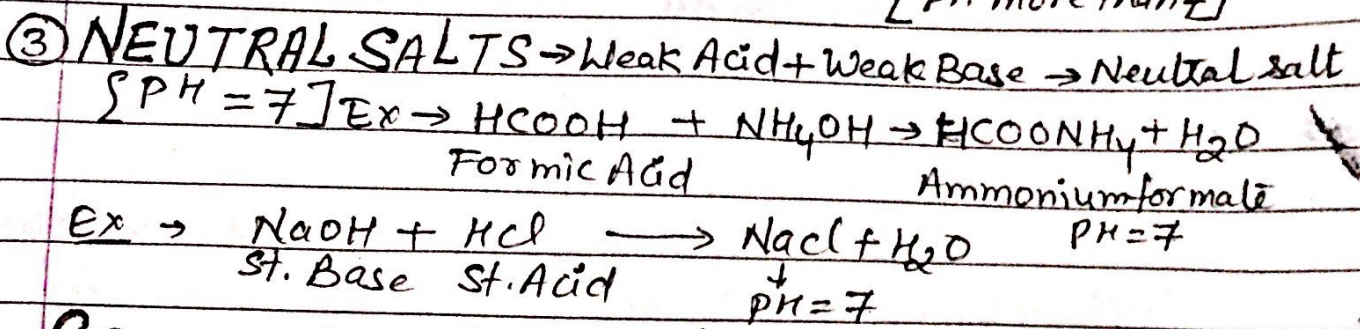 ③ NEUTRAL SALTS → Weak Acid + Weak Base → Neutral salt
[PH = 7] Ex → HCOOH + NH4OH → HCOONH4 + H2O
Formic Acid Ammonium formate
Ex → NaOH + HCl ⟶ Nacl + H2O PH = 7
St. Base St. Acid ↓ pH = 7